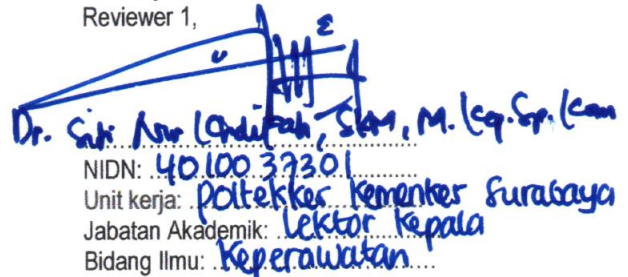 Reviewer 1,
Dr. Siti Nur Kholifah, SKM, M.Kep.Sp.Kom
NIDN: 4010037301
Unit kerja: Poltekkes Kemenkes Surabaya
Jabatan Akademik: Lektor Kepala
Bidang Ilmu: Keperawatan